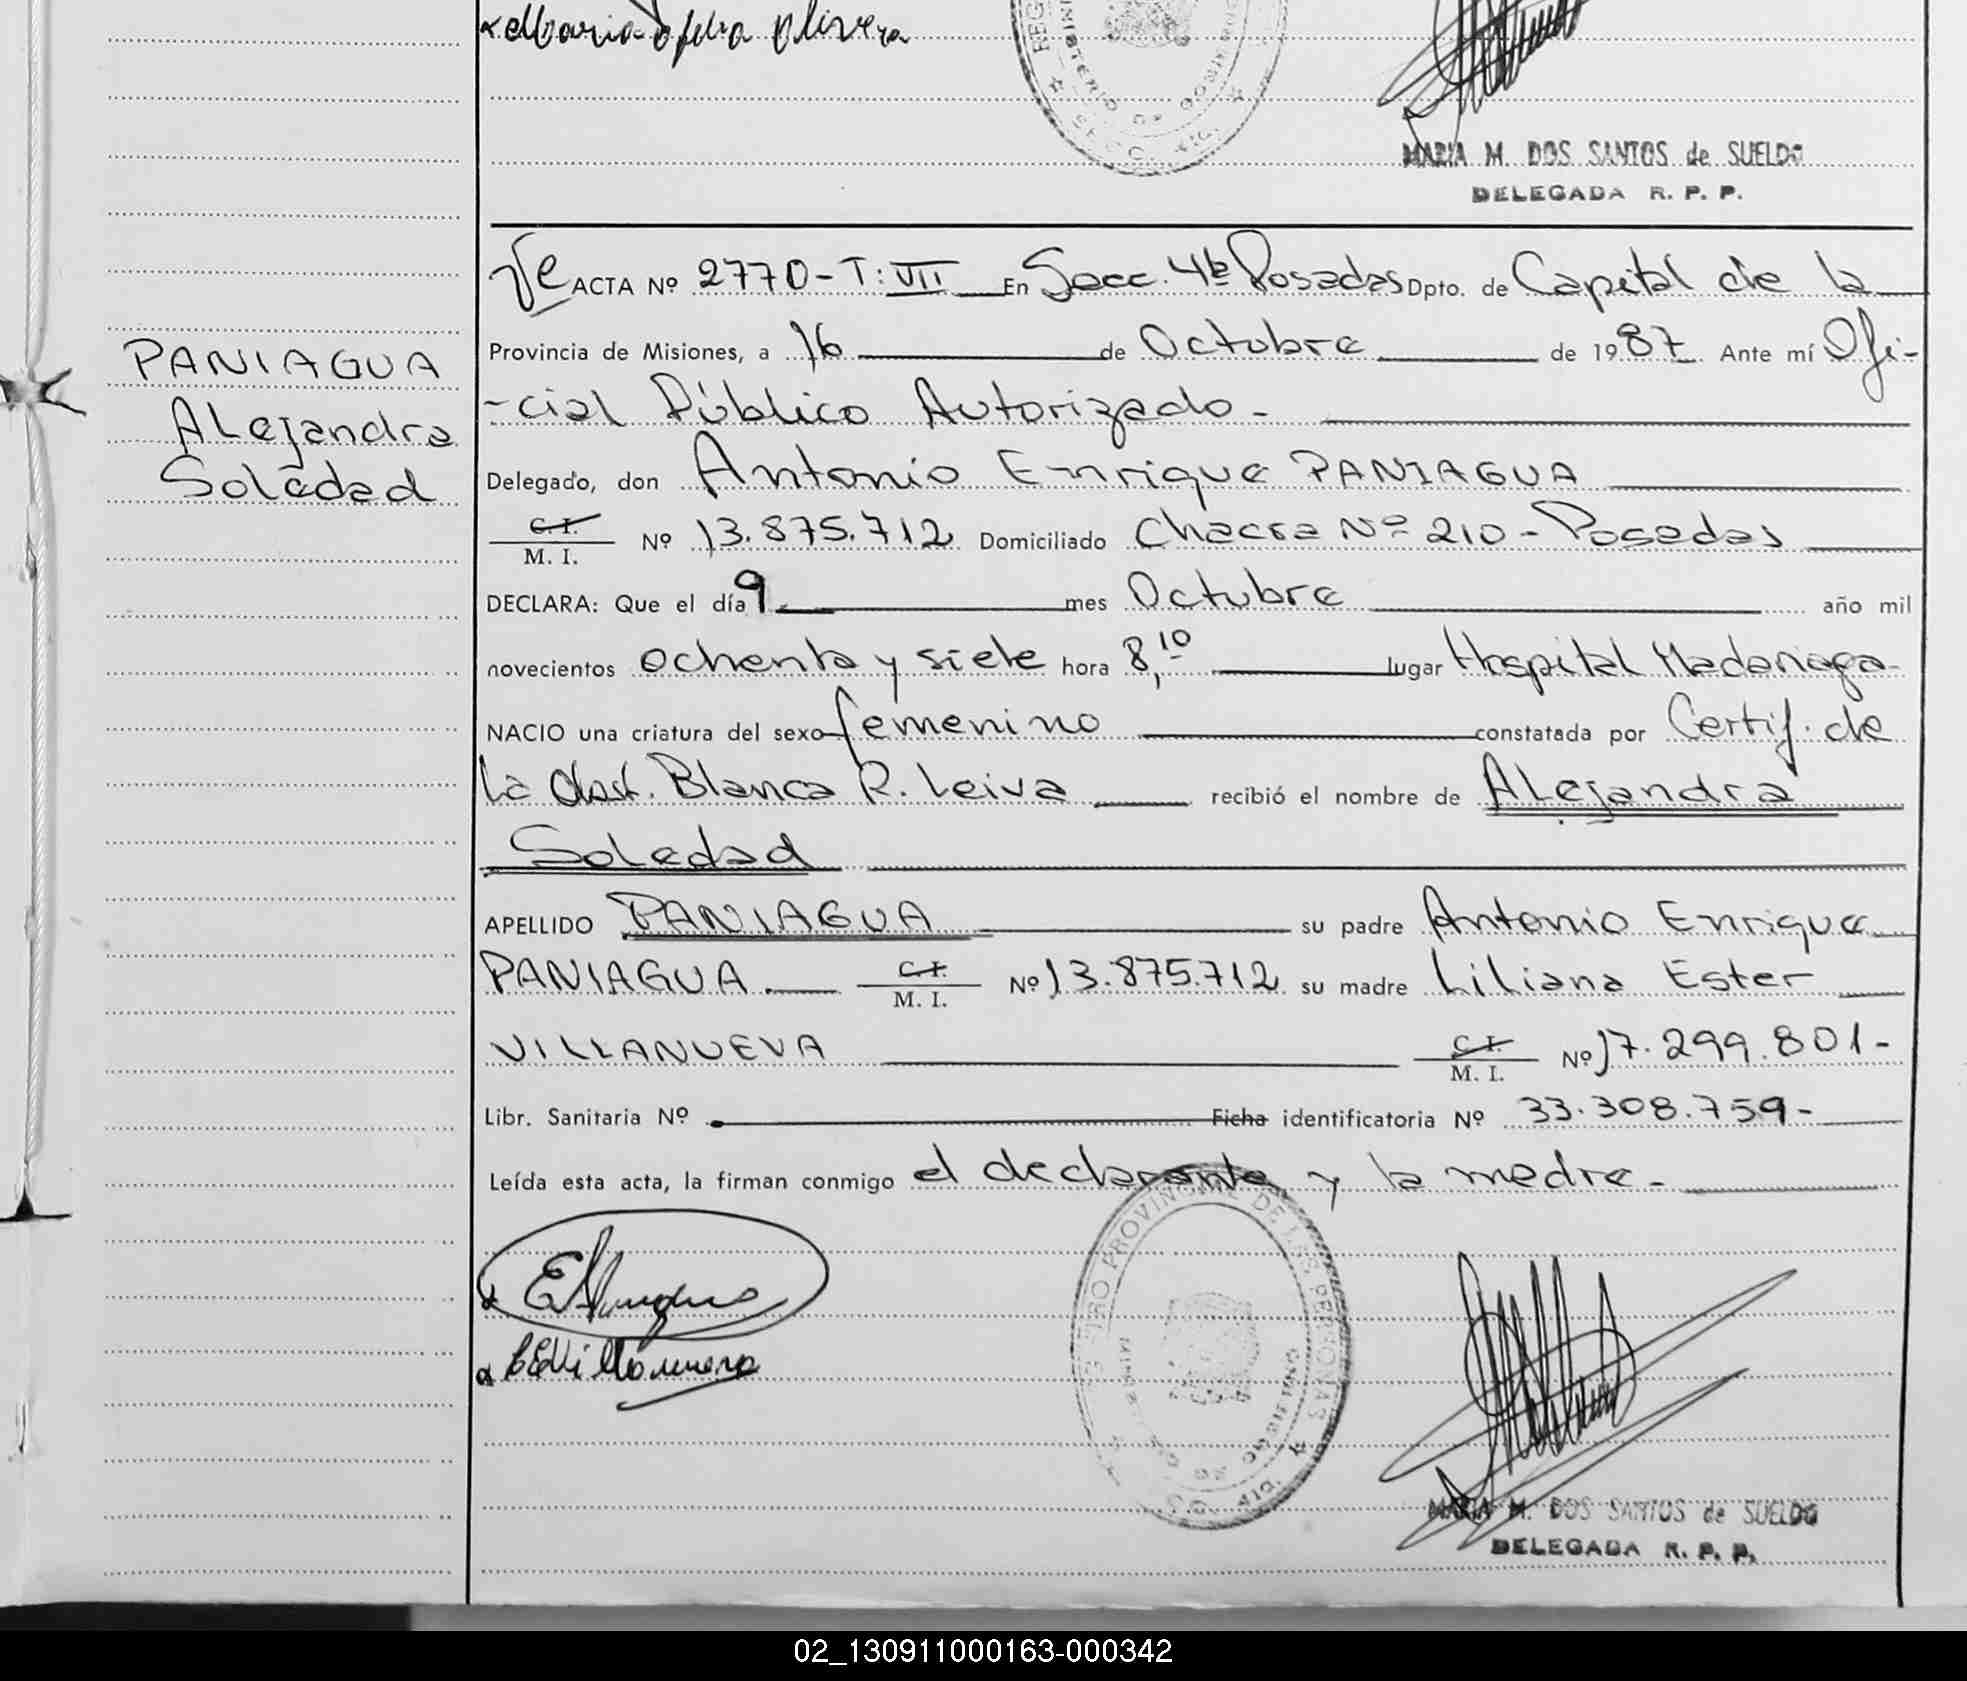 Maria Ofelia Olivera
MARIA M. DOS SANTOS de SUELDO
DELEGADA R. P. P.
PANIAGUA
Alejandra
Soledad
ACTA Nº 2770-T: VII En Secc. 4ta Posadas Dpto. de Capital de la
Provincia de Misiones, a 16 de Octubre de 1987. Ante mí Ofi-
-cial Público Autorizado-
Delegado, don Antonio Enrique PANIAGUA
C.I.
M. I. Nº 13.875.712 Domiciliado Chacra Nº 210-Posadas
DECLARA: Que el día 9 mes Octubre año mil
novecientos ochenta y siete hora 8,10 lugar Hospital Madariaga-
NACIO una criatura del sexo femenino constatada por Certif. de
la obst. Blanca R. Leiva recibió el nombre de Alejandra
Soledad
APELLIDO PANIAGUA su padre Antonio Enrique
PANIAGUA C.I. M. I. Nº 13.875.712 su madre Liliana Ester
VILLANUEVA C.I. M. I. Nº 17.299.801-
Libr. Sanitaria Nº Ficha identificatoria Nº 33.308.759-
Leída esta acta, la firman conmigo el declarante y la madre-
REGISTRO PROVINCIAL DE LAS PERSONAS
MINISTERIO DE GOBIERNO
MARIA M. DOS SANTOS de SUELDO
DELEGADA R. P. P.
02_130911000163-000342